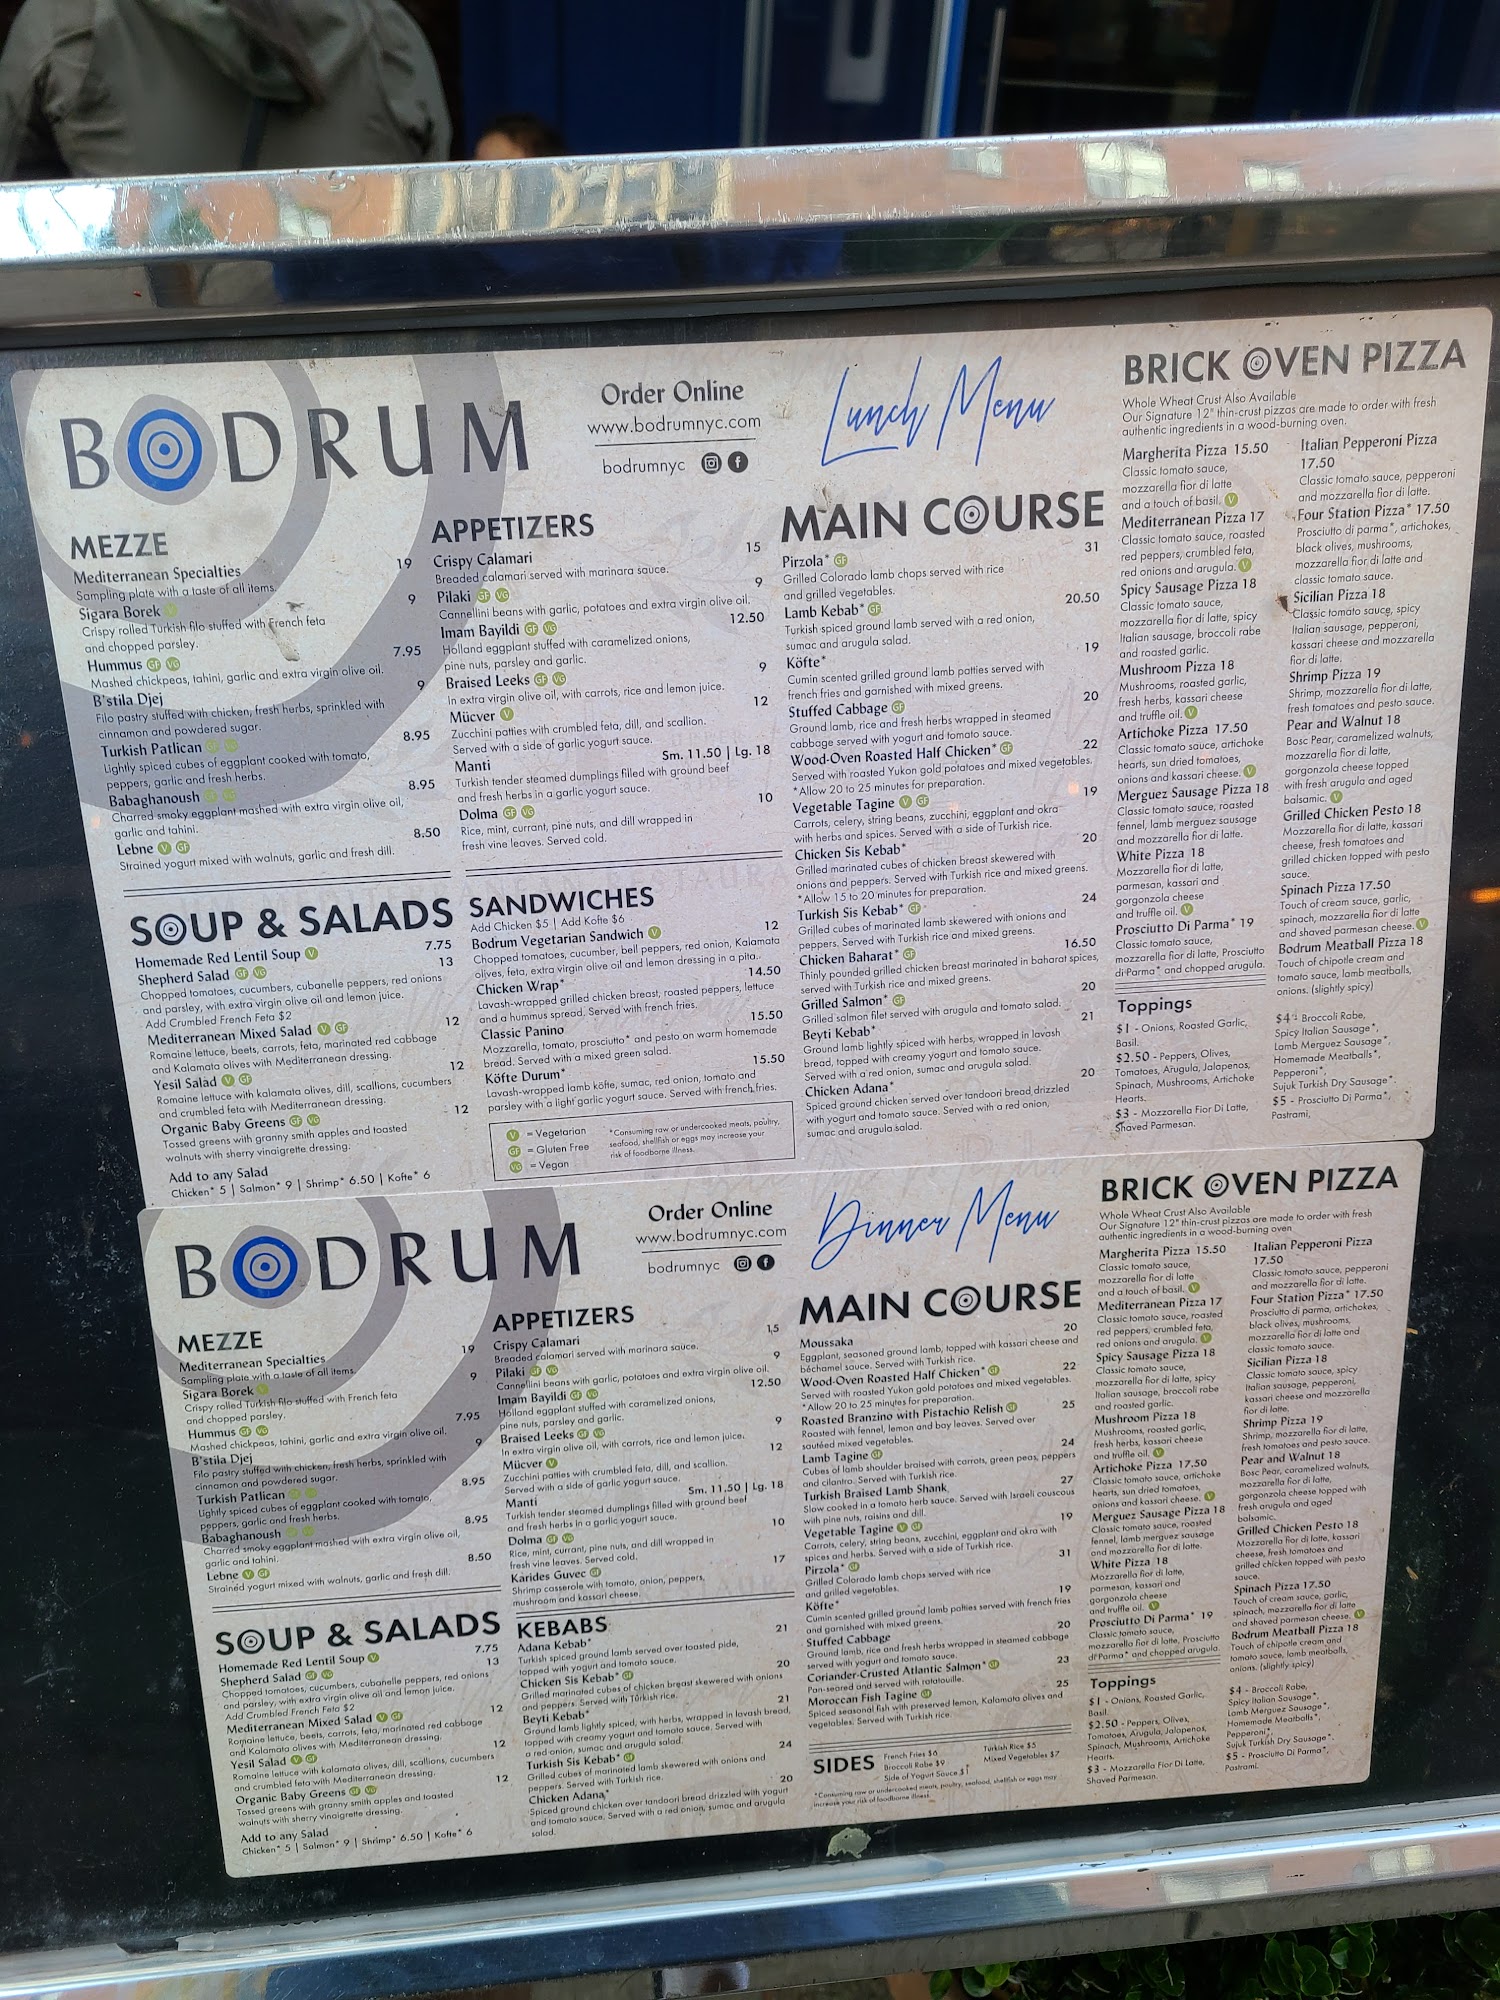 BODRUM
Order Online
www.bodrumnyc.com
bodrumnyc
Lunch Menu
MEZZE
Mediterranean Specialties 19
Sampling plate with a taste of all items.
Sigara Borek V 9
Crispy rolled Turkish filo stuffed with French feta
and chopped parsley.
Hummus GF VG 7.95
Mashed chickpeas, tahini, garlic and extra virgin olive oil.
B'stila Djej 9
Filo pastry stuffed with chicken, fresh herbs, sprinkled with
cinnamon and powdered sugar.
Turkish Patlican 8.95
Lightly spiced cubes of eggplant cooked with tomato,
peppers, garlic and fresh herbs.
Babaghanoush 8.95
Charred smoky eggplant mashed with extra virgin olive oil,
garlic and tahini.
Lebne V GF 8.50
Strained yogurt mixed with walnuts, garlic and fresh dill.
SOUP & SALADS
Homemade Red Lentil Soup V 7.75
Shepherd Salad GF VG 13
Chopped tomatoes, cucumbers, cubanelle peppers, red onions
and parsley, with extra virgin olive oil and lemon juice.
Add Crumbled French Feta $2
Mediterranean Mixed Salad V GF 12
Romaine lettuce, beets, carrots, feta, marinated red cabbage
and Kalamata olives with Mediterranean dressing.
Yesil Salad V GF 12
Romaine lettuce with kalamata olives, dill, scallions, cucumbers
and crumbled feta with Mediterranean dressing.
Organic Baby Greens GF VG 12
Tossed greens with granny smith apples and toasted
walnuts with sherry vinaigrette dressing.
Add to any Salad
Chicken* 5 | Salmon* 9 | Shrimp* 6.50 | Kofte* 6
APPETIZERS
Crispy Calamari 15
Breaded calamari served with marinara sauce.
Pilaki GF VG 9
Cannellini beans with garlic, potatoes and extra virgin olive oil.
Imam Bayildi GF VG 12.50
Holland eggplant stuffed with caramelized onions,
pine nuts, parsley and garlic.
Braised Leeks GF VG 9
In extra virgin olive oil, with carrots, rice and lemon juice.
Mücver V 12
Zucchini patties with crumbled feta, dill, and scallion.
Served with a side of garlic yogurt sauce.
Manti Sm. 11.50 | Lg. 18
Turkish tender steamed dumplings filled with ground beef
and fresh herbs in a garlic yogurt sauce.
Dolma GF VG 10
Rice, mint, currant, pine nuts, and dill wrapped in
fresh vine leaves. Served cold.
SANDWICHES
Add Chicken $5 | Add Kofte $6
Bodrum Vegetarian Sandwich V 12
Chopped tomatoes, cucumber, bell peppers, red onion, Kalamata
olives, feta, extra virgin olive oil and lemon dressing in a pita..
Chicken Wrap* 14.50
Lavash-wrapped grilled chicken breast, roasted peppers, lettuce
and a hummus spread. Served with french fries.
Classic Panino 15.50
Mozzarella, tomato, prosciutto* and pesto on warm homemade
bread. Served with a mixed green salad.
Köfte Durum* 15.50
Lavash-wrapped lamb köfte, sumac, red onion, tomato and
parsley with a light garlic yogurt sauce. Served with french fries.
V = Vegetarian
GF = Gluten Free
VG = Vegan
*Consuming raw or undercooked meats, poultry,
seafood, shellfish or eggs may increase your
risk of foodborne illness.
MAIN COURSE
Pirzola* GF 31
Grilled Colorado lamb chops served with rice
and grilled vegetables.
Lamb Kebab* GF 20.50
Turkish spiced ground lamb served with a red onion,
sumac and arugula salad.
Köfte* 19
Cumin scented grilled ground lamb patties served with
french fries and garnished with mixed greens.
Stuffed Cabbage GF 20
Ground lamb, rice and fresh herbs wrapped in steamed
cabbage served with yogurt and tomato sauce.
Wood-Oven Roasted Half Chicken* GF 22
Served with roasted Yukon gold potatoes and mixed vegetables.
*Allow 20 to 25 minutes for preparation.
Vegetable Tagine V GF 19
Carrots, celery, string beans, zucchini, eggplant and okra
with herbs and spices. Served with a side of Turkish rice.
Chicken Sis Kebab* 20
Grilled marinated cubes of chicken breast skewered with
onions and peppers. Served with Turkish rice and mixed greens.
*Allow 15 to 20 minutes for preparation.
Turkish Sis Kebab* GF 24
Grilled cubes of marinated lamb skewered with onions and
peppers. Served with Turkish rice and mixed greens.
Chicken Baharat* GF 16.50
Thinly pounded grilled chicken breast marinated in baharat spices,
served with Turkish rice and mixed greens.
Grilled Salmon* GF 20
Grilled salmon filet served with arugula and tomato salad.
Beyti Kebab* 21
Ground lamb lightly spiced with herbs, wrapped in lavash
bread, topped with creamy yogurt and tomato sauce.
Served with a red onion, sumac and arugula salad.
Chicken Adana* 20
Spiced ground chicken served over tandoori bread drizzled
with yogurt and tomato sauce. Served with a red onion,
sumac and arugula salad.
BRICK OVEN PIZZA
Whole Wheat Crust Also Available
Our Signature 12" thin-crust pizzas are made to order with fresh
authentic ingredients in a wood-burning oven.
Margherita Pizza 15.50
Classic tomato sauce,
mozzarella fior di latte
and a touch of basil. V
Mediterranean Pizza 17
Classic tomato sauce, roasted
red peppers, crumbled feta,
red onions and arugula. V
Spicy Sausage Pizza 18
Classic tomato sauce,
mozzarella fior di latte, spicy
Italian sausage, broccoli rabe
and roasted garlic.
Mushroom Pizza 18
Mushrooms, roasted garlic,
fresh herbs, kassari cheese
and truffle oil. V
Artichoke Pizza 17.50
Classic tomato sauce, artichoke
hearts, sun dried tomatoes,
onions and kassari cheese. V
Merguez Sausage Pizza 18
Classic tomato sauce, roasted
fennel, lamb merguez sausage
and mozzarella fior di latte.
White Pizza 18
Mozzarella fior di latte,
parmesan, kassari and
gorgonzola cheese
and truffle oil. V
Prosciutto Di Parma* 19
Classic tomato sauce,
mozzarella fior di latte, Prosciutto
di Parma* and chopped arugula.
Italian Pepperoni Pizza
17.50
Classic tomato sauce, pepperoni
and mozzarella fior di latte.
Four Station Pizza* 17.50
Prosciutto di parma*, artichokes,
black olives, mushrooms,
mozzarella fior di latte and
classic tomato sauce.
Sicilian Pizza 18
Classic tomato sauce, spicy
Italian sausage, pepperoni,
kassari cheese and mozzarella
fior di latte.
Shrimp Pizza 19
Shrimp, mozzarella fior di latte,
fresh tomatoes and pesto sauce.
Pear and Walnut 18
Bosc Pear, caramelized walnuts,
mozzarella fior di latte,
gorgonzola cheese topped
with fresh arugula and aged
balsamic. V
Grilled Chicken Pesto 18
Mozzarella fior di latte, kassari
cheese, fresh tomatoes and
grilled chicken topped with pesto
sauce.
Spinach Pizza 17.50
Touch of cream sauce, garlic,
spinach, mozzarella fior di latte
and shaved parmesan cheese. V
Bodrum Meatball Pizza 18
Touch of chipotle cream and
tomato sauce, lamb meatballs,
onions. (slightly spicy)
Toppings
$1 - Onions, Roasted Garlic,
Basil.
$2.50 - Peppers, Olives,
Tomatoes, Arugula, Jalapenos,
Spinach, Mushrooms, Artichoke
Hearts.
$3 - Mozzarella Fior Di Latte,
Shaved Parmesan.
$4 - Broccoli Rabe,
Spicy Italian Sausage*,
Lamb Merguez Sausage*,
Homemade Meatballs*,
Pepperoni*,
Sujuk Turkish Dry Sausage*.
$5 - Prosciutto Di Parma*,
Pastrami,
BODRUM
Order Online
www.bodrumnyc.com
bodrumnyc
Dinner Menu
MEZZE
Mediterranean Specialties 19
Sampling plate with a taste of all items.
Sigara Borek V 9
Crispy rolled Turkish filo stuffed with French feta
and chopped parsley.
Hummus GF VG 7.95
Mashed chickpeas, tahini, garlic and extra virgin olive oil.
B'stila Djej 9
Filo pastry stuffed with chicken, fresh herbs, sprinkled with
cinnamon and powdered sugar.
Turkish Patlican 8.95
Lightly spiced cubes of eggplant cooked with tomato,
peppers, garlic and fresh herbs.
Babaghanoush 8.95
Charred smoky eggplant mashed with extra virgin olive oil,
garlic and tahini.
Lebne V GF 8.50
Strained yogurt mixed with walnuts, garlic and fresh dill.
SOUP & SALADS
Homemade Red Lentil Soup V 7.75
Shepherd Salad GF VG 13
Chopped tomatoes, cucumbers, cubanelle peppers, red onions
and parsley, with extra virgin olive oil and lemon juice.
Add Crumbled French Feta $2
Mediterranean Mixed Salad V GF 12
Romaine lettuce, beets, carrots, feta, marinated red cabbage
and Kalamata olives with Mediterranean dressing.
Yesil Salad V GF 12
Romaine lettuce with kalamata olives, dill, scallions, cucumbers
and crumbled feta with Mediterranean dressing.
Organic Baby Greens GF VG 12
Tossed greens with granny smith apples and toasted
walnuts with sherry vinaigrette dressing.
Add to any Salad
Chicken* 5 | Salmon* 9 | Shrimp* 6.50 | Kofte* 6
APPETIZERS
Crispy Calamari 15
Breaded calamari served with marinara sauce.
Pilaki GF VG 9
Cannellini beans with garlic, potatoes and extra virgin olive oil.
Imam Bayildi GF VG 12.50
Holland eggplant stuffed with caramelized onions,
pine nuts, parsley and garlic.
Braised Leeks GF VG 9
In extra virgin olive oil, with carrots, rice and lemon juice.
Mücver V 12
Zucchini patties with crumbled feta, dill, and scallion.
Served with a side of garlic yogurt sauce.
Manti Sm. 11.50 | Lg. 18
Turkish tender steamed dumplings filled with ground beef
and fresh herbs in a garlic yogurt sauce.
Dolma GF VG 10
Rice, mint, currant, pine nuts, and dill wrapped in
fresh vine leaves. Served cold.
Karides Guvec GF 17
Shrimp casserole with tomato, onion, peppers,
mushroom and kassari cheese.
KEBABS
Adana Kebab* 21
Turkish spiced ground lamb served over toasted pide,
topped with yogurt and tomato sauce.
Chicken Sis Kebab* GF 20
Grilled marinated cubes of chicken breast skewered with onions
and peppers. Served with Turkish rice.
Beyti Kebab* 21
Ground lamb lightly spiced, with herbs, wrapped in lavash bread,
topped with creamy yogurt and tomato sauce. Served with
a red onion, sumac and arugula salad.
Turkish Sis Kebab* GF 24
Grilled cubes of marinated lamb skewered with onions and
peppers. Served with Turkish rice.
Chicken Adana* 20
Spiced ground chicken over tandoori bread drizzled with yogurt
and tomato sauce. Served with a red onion, sumac and arugula
salad.
MAIN COURSE
Moussaka 20
Eggplant, seasoned ground lamb, topped with kassari cheese and
béchamel sauce. Served with Turkish rice.
Wood-Oven Roasted Half Chicken* GF 22
Served with roasted Yukon gold potatoes and mixed vegetables.
*Allow 20 to 25 minutes for preparation.
Roasted Branzino with Pistachio Relish GF 25
Roasted with fennel, lemon and bay leaves. Served over
sautéed mixed vegetables.
Lamb Tagine GF 24
Cubes of lamb shoulder braised with carrots, green peas, peppers
and cilantro. Served with Turkish rice.
Turkish Braised Lamb Shank 27
Slow cooked in a tomato herb sauce. Served with Israeli couscous
with pine nuts, raisins and dill.
Vegetable Tagine V GF 19
Carrots, celery, string beans, zucchini, eggplant and okra with
spices and herbs. Served with a side of Turkish rice.
Pirzola* GF 31
Grilled Colorado lamb chops served with rice
and grilled vegetables.
Köfte* 19
Cumin scented grilled ground lamb patties served with french fries
and garnished with mixed greens.
Stuffed Cabbage 20
Ground lamb, rice and fresh herbs wrapped in steamed cabbage
served with yogurt and tomato sauce.
Coriander-Crusted Atlantic Salmon* GF 23
Pan-seared and served with ratatouille.
Moroccan Fish Tagine GF 25
Spiced seasonal fish with preserved lemon, Kalamata olives and
vegetables. Served with Turkish rice.
SIDES
French Fries $6
Broccoli Rabe $9
Side of Yogurt Sauce $1
Turkish Rice $5
Mixed Vegetables $7
*Consuming raw or undercooked meats, poultry, seafood, shellfish or eggs may
increase your risk of foodborne illness.
BRICK OVEN PIZZA
Whole Wheat Crust Also Available
Our Signature 12" thin-crust pizzas are made to order with fresh
authentic ingredients in a wood-burning oven
Margherita Pizza 15.50
Classic tomato sauce,
mozzarella fior di latte
and a touch of basil. V
Mediterranean Pizza 17
Classic tomato sauce, roasted
red peppers, crumbled feta,
red onions and arugula. V
Spicy Sausage Pizza 18
Classic tomato sauce,
mozzarella fior di latte, spicy
Italian sausage, broccoli rabe
and roasted garlic.
Mushroom Pizza 18
Mushrooms, roasted garlic,
fresh herbs, kassari cheese
and truffle oil. V
Artichoke Pizza 17.50
Classic tomato sauce, artichoke
hearts, sun dried tomatoes,
onions and kassari cheese. V
Merguez Sausage Pizza 18
Classic tomato sauce, roasted
fennel, lamb merguez sausage
and mozzarella fior di latte.
White Pizza 18
Mozzarella fior di latte,
parmesan, kassari and
gorgonzola cheese
and truffle oil. V
Prosciutto Di Parma* 19
Classic tomato sauce,
mozzarella fior di latte, Prosciutto
di Parma* and chopped arugula.
Italian Pepperoni Pizza
17.50
Classic tomato sauce, pepperoni
and mozzarella fior di latte.
Four Station Pizza* 17.50
Prosciutto di parma, artichokes,
black olives, mushrooms,
mozzarella fior di latte and
classic tomato sauce.
Sicilian Pizza 18
Classic tomato sauce, spicy
Italian sausage, pepperoni,
kassari cheese and mozzarella
fior di latte.
Shrimp Pizza 19
Shrimp, mozzarella fior di latte,
fresh tomatoes and pesto sauce.
Pear and Walnut 18
Bosc Pear, caramelized walnuts,
mozzarella fior di latte,
gorgonzola cheese topped with
fresh arugula and aged
balsamic.
Grilled Chicken Pesto 18
Mozzarella fior di latte, kassari
cheese, fresh tomatoes and
grilled chicken topped with pesto
sauce.
Spinach Pizza 17.50
Touch of cream sauce, garlic,
spinach, mozzarella fior di latte
and shaved parmesan cheese. V
Bodrum Meatball Pizza 18
Touch of chipotle cream and
tomato sauce, lamb meatballs,
onions. (slightly spicy)
Toppings
$1 - Onions, Roasted Garlic,
Basil.
$2.50 - Peppers, Olives,
Tomatoes, Arugula, Jalapenos,
Spinach, Mushrooms, Artichoke
Hearts.
$3 - Mozzarella Fior Di Latte,
Shaved Parmesan.
$4 - Broccoli Rabe,
Spicy Italian Sausage*,
Lamb Merguez Sausage*,
Homemade Meatballs*,
Pepperoni*,
Sujuk Turkish Dry Sausage*.
$5 - Prosciutto Di Parma*,
Pastrami.